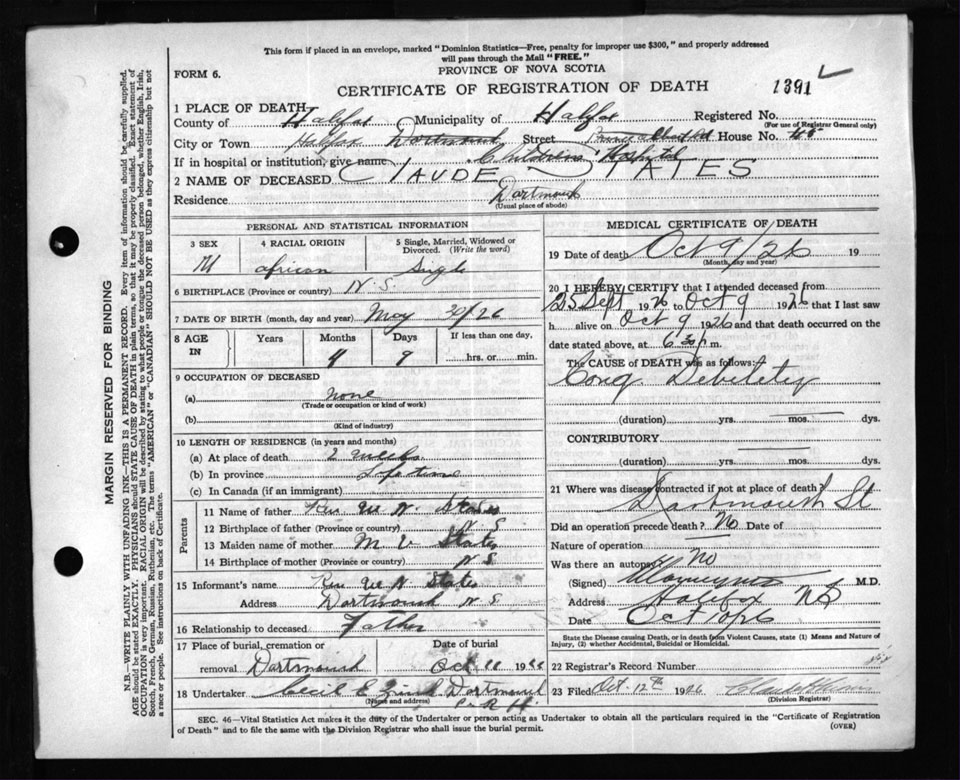 This form if placed in an envelope, marked "Dominion Statistics—Free, penalty for improper use $300," and properly addressed
will pass through the Mail "FREE."
PROVINCE OF NOVA SCOTIA
FORM 6.
CERTIFICATE OF REGISTRATION OF DEATH
1391
1 PLACE OF DEATH
County of Halifax Municipality of Halifax Registered No.
(For use of Registrar General only)
City or Town Halifax Dartmouth Street House No.
If in hospital or institution, give name Childrens Hospital
2 NAME OF DECEASED CLAUDE STATES
Residence Dartmouth
(Usual place of abode)
PERSONAL AND STATISTICAL INFORMATION
3 SEX 4 RACIAL ORIGIN 5 Single, Married, Widowed or Divorced. (Write the word)
M african Single
6 BIRTHPLACE (Province or country) N.S.
7 DATE OF BIRTH (month, day and year) May 30/26
8 AGE IN Years Months Days If less than one day,
4 9 hrs. or min.
9 OCCUPATION OF DECEASED
(a) none
(Trade or occupation or kind of work)
(b)
(Kind of industry)
10 LENGTH OF RESIDENCE (in years and months)
(a) At place of death 2 weeks
(b) In province Life time
(c) In Canada (if an immigrant)
Parents
11 Name of father Rev W. N. States
12 Birthplace of father (Province or country) N S
13 Maiden name of mother M V States
14 Birthplace of mother (Province or country) N S
15 Informant's name Rev W N States
Address Dartmouth N S
16 Relationship to deceased Father
17 Place of burial, cremation or Date of burial
removal Dartmouth Oct 11 1926
18 Undertaker Cecil E Dartmouth
(Name and address)
MEDICAL CERTIFICATE OF DEATH
19 Date of death Oct 9/26 19
(Month, day and year)
20 I HEREBY CERTIFY that I attended deceased from
25 Sept 1926 to Oct 9 1926 that I last saw
h alive on Oct 9 1926 and that death occurred on the
date stated above, at 6 30 p m.
The CAUSE OF DEATH was as follows:
Cong Debility
(duration) yrs. mos. dys.
CONTRIBUTORY
(duration) yrs. mos. dys.
21 Where was disease contracted if not at place of death?
Dartmouth
Did an operation precede death? No Date of
Nature of operation
Was there an autopsy? No
(Signed) M.D.
Address Halifax NS
Date Oct
State the Disease causing Death, or in death from Violent Causes, state (1) Means and Nature of
Injury, (2) whether Accidental, Suicidal or Homicidal.
22 Registrar's Record Number
23 Filed Oct. 12th 1926
(Division Registrar)
SEC. 46—Vital Statistics Act makes it the duty of the Undertaker or person acting as Undertaker to obtain all the particulars required in the "Certificate of Registration
of Death" and to file the same with the Division Registrar who shall issue the burial permit.
(OVER)
MARGIN RESERVED FOR BINDING
N.B.—WRITE PLAINLY WITH UNFADING INK—THIS IS A PERMANENT RECORD. Every item of information should be carefully supplied.
AGE should be stated EXACTLY. PHYSICIANS should STATE CAUSE OF DEATH in plain terms, so that it may be properly classified. Exact statement of
OCCUPATION is very important. RACIAL ORIGIN will be described by stating to what people or tongue the deceased person belonged, whether English, Irish,
Scotch, French, German, Russian, Ruthenian, etc. The terms "AMERICAN" or "CANADIAN" SHOULD NOT BE USED as they express citizenship but not
a race or people. See instructions on back of Certificate.